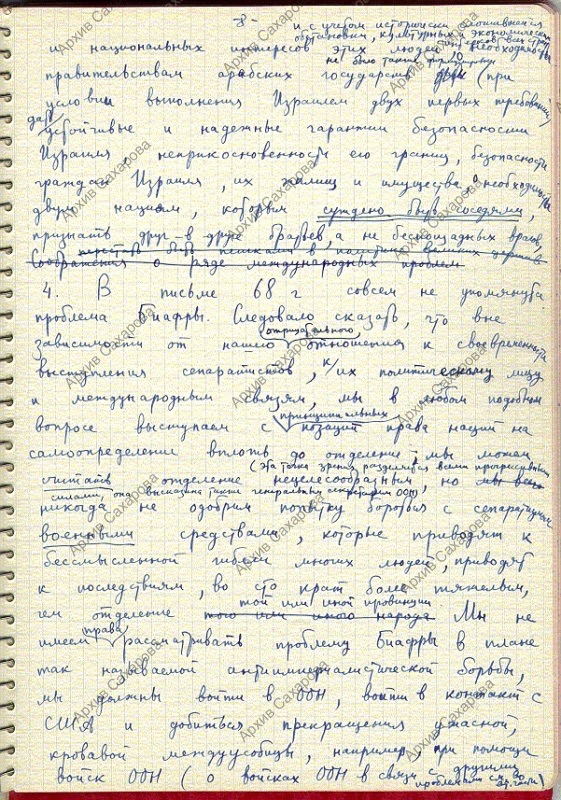 - 8 -
и с учетом исторически сложившейся
обстановки, культурных и экономических
и национальных интересов этих людей, необходимость
не было таких
правительствам арабских государств (при
условии выполнения Израилем двух первых требований)
дать
устойчивые и надежные гарантии безопасности
Израиля, неприкосновенности его границ, безопасности
граждан Израиля, их жилищ и имущества, необходимость
двум нациям, которым суждено быть соседями,
признать друг в друге братьев, а не беспощадных врагов,
перестать быть пешками в политике великих держав
Соображения о ряде международных проблем
4. В письме 68 г совсем не упомянута
проблема Биафры. Следовало сказать, что вне
отрицательного
зависимости от нашего отношения к своевременности
выступления сепаратистов, к их политическому лицу
и международным связям, мы в любом подобном
принципиальных
вопросе выступаем с позиций права наций на
самоопределение вплоть до отделения; мы можем
(Эта точка зрения разделяется всеми прогрессивными
считать отделение нецелесообразным, но мы
силами, она высказана также генеральным секретарем ООН)
никогда не одобрим попытку бороться с сепаратизмом
военными средствами, которые приводят к
бессмысленной гибели многих людей, приводят
к последствиям, во сто крат более тяжелым,
той или иной провинции
чем отделение того или иного народа Мы не
права
имеем рассматривать проблему Биафры в плане
так называемой антиимпериалистической борьбы,
мы должны войти в ООН, войти в контакт с
США и добиться прекращения ужасной,
кровавой междуусобицы, например, при помощи
войск ООН (о войсках ООН в связи с другими
проблемами см. во
Архив Сахарова
Архив Сахарова
Архив Сахарова
Архив Сахарова
Архив Сахарова
Архив Сахарова
Архив Сахарова
Архив Сахарова
Архив Сахарова
Архив Сахарова
Архив Сахарова
Архив Сахарова